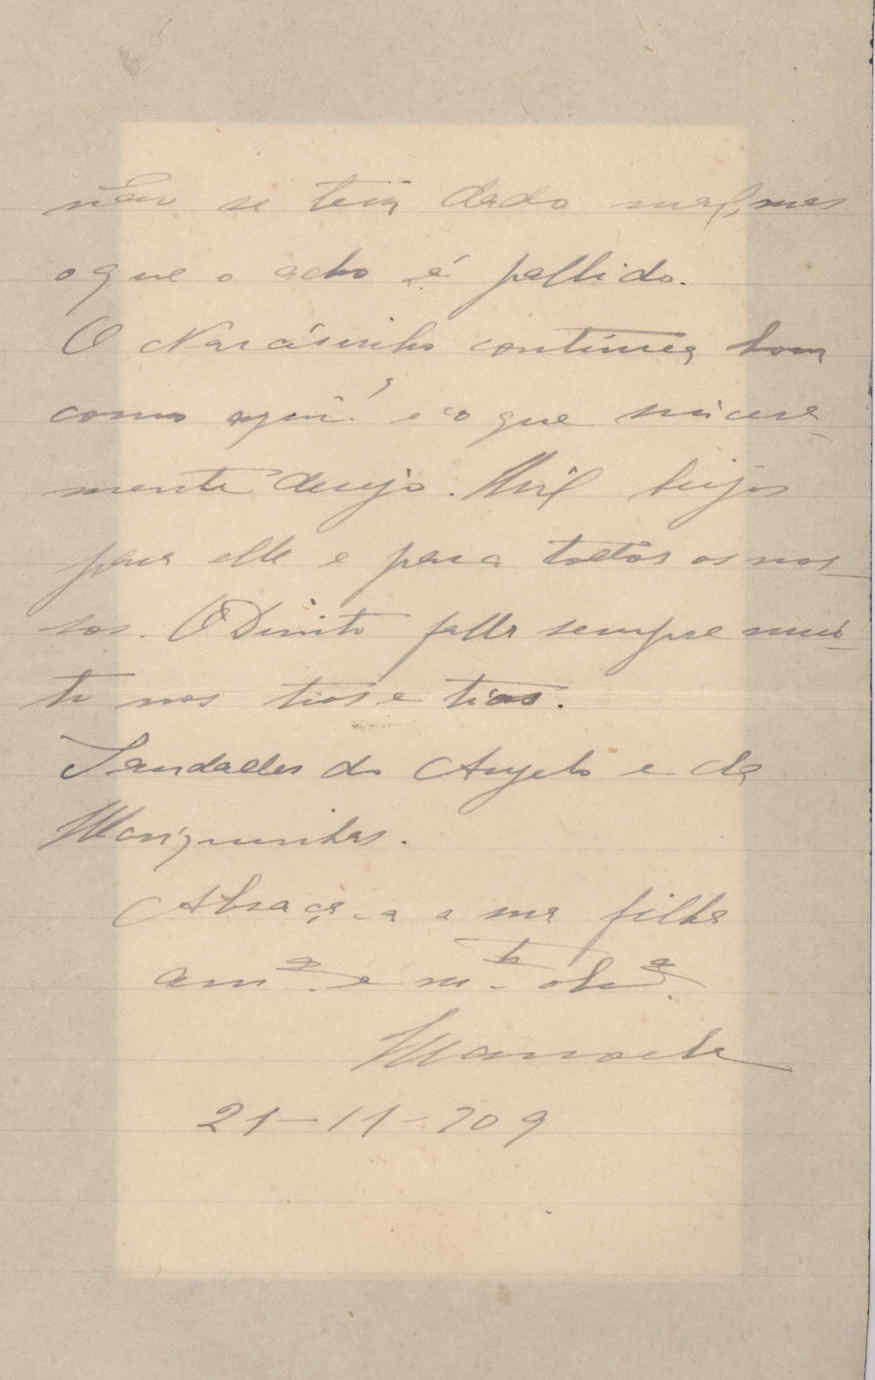 não se tem dado mal, mas
o que o acho é pallido.
O Narcisinho continua bom
como aqui? é o que sincera
mente desejo. Mil beijos
para elle e para todos os nos_
sos. O Dinito falla sempre mui_
to nos tios e tias.
Saudades do Angelo e da
Mariquinhas.
Abraça-a a sua filha
amª. e mto obrª.
Manoela
21-11-909